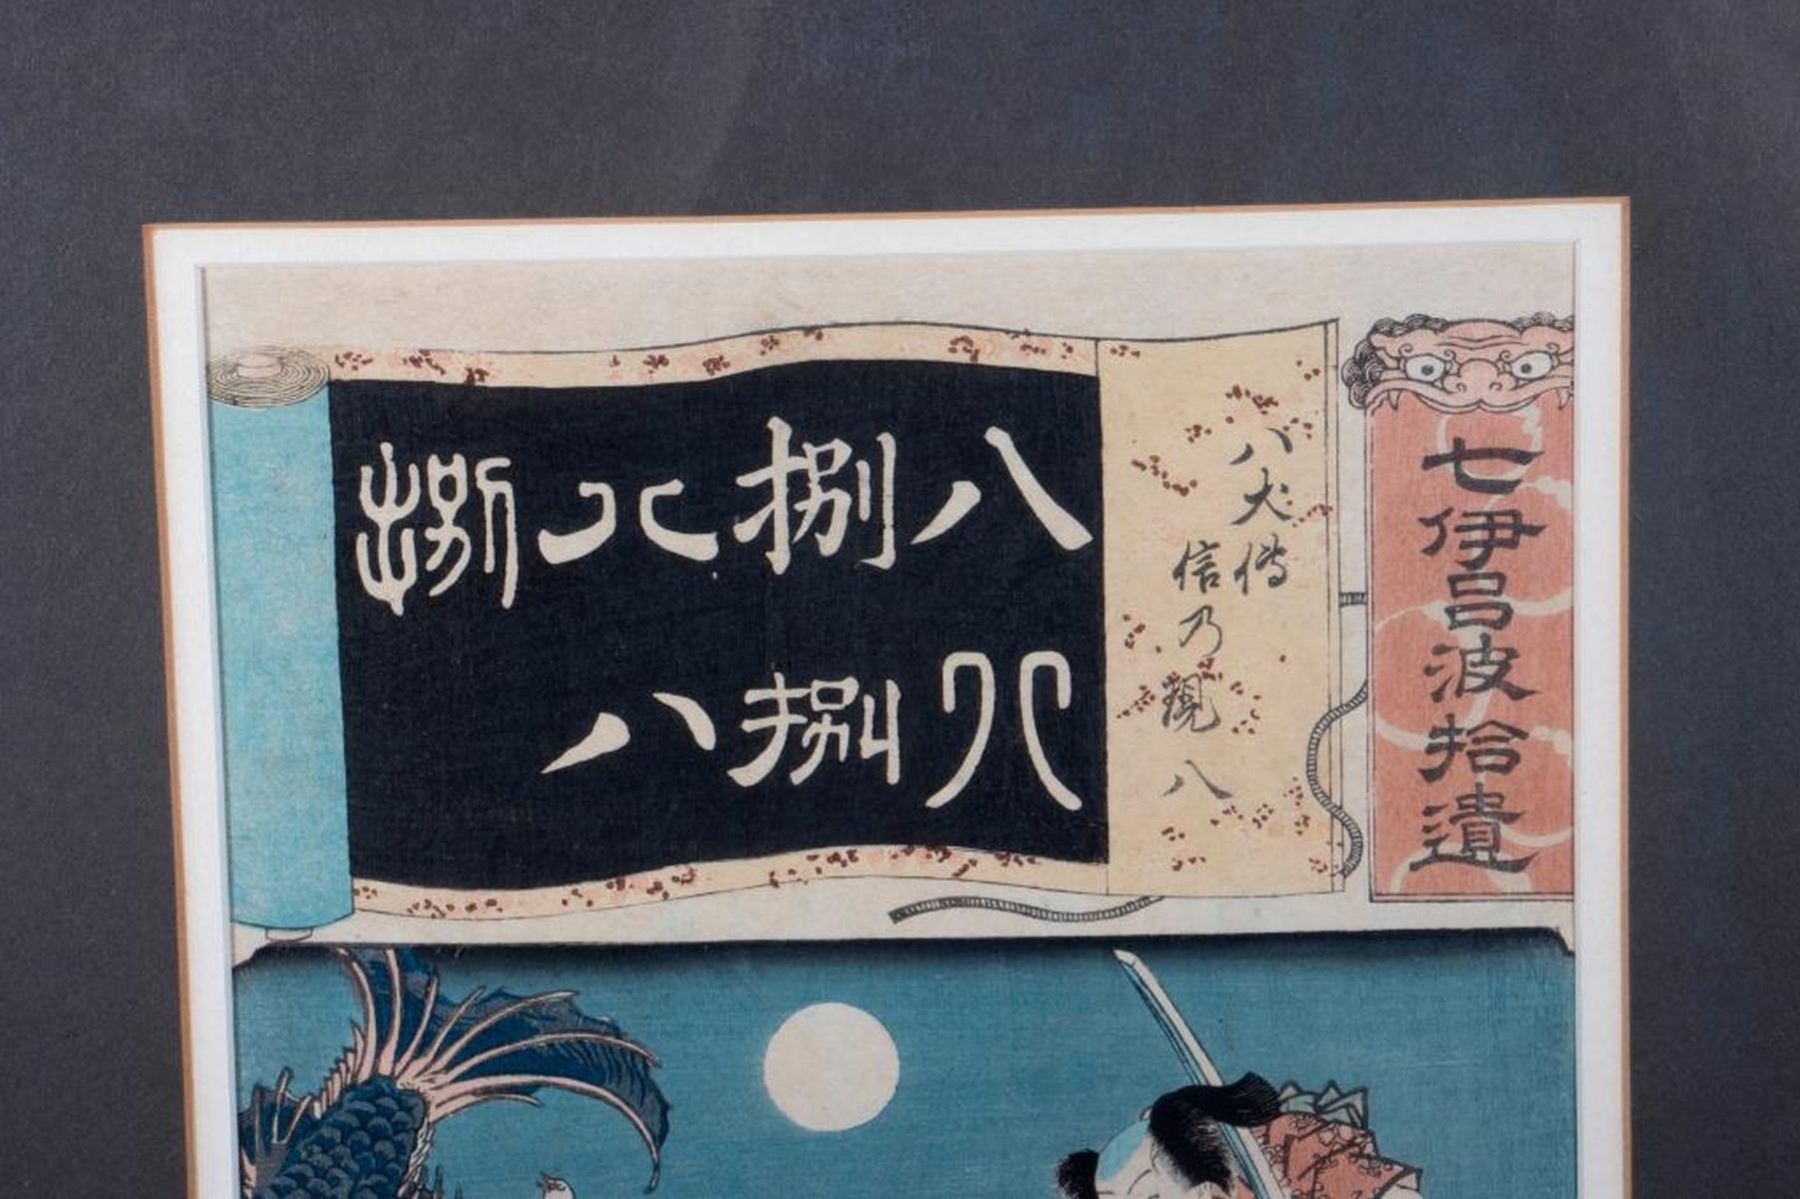 七伊呂波拾遺
八犬傳
信乃現八
八
捌
八
捌
八
捌
八